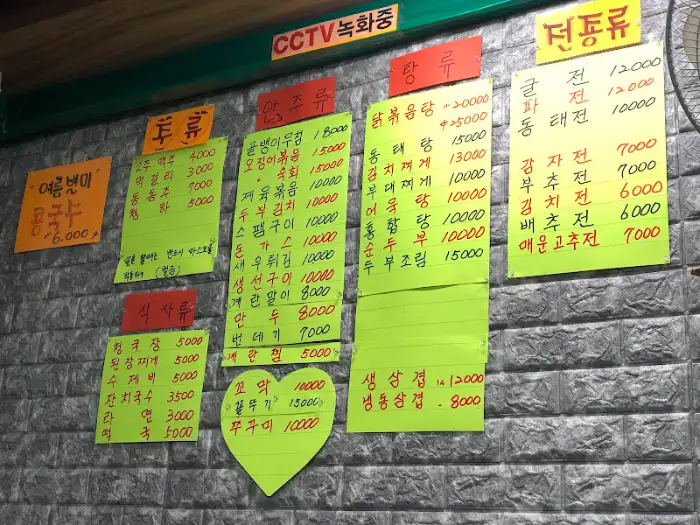 CCTV녹화중
여름별미
콩국수
6.000
주류
소주맥주 4000
막걸리 3000
동동주 7000
청하 5000
식사류
청국장 5000
된장찌게 5000
수제비 5000
잔치국수 3500
라면 3000
떡국 5000
안주류
골뱅이무침 18000
오징어볶음 15000
숙회 15000
제육볶음 10000
두부김치 10000
스팸구이 10000
돈가스 10000
새우튀김 10000
생선구이 10000
계란말이 8000
만두 8000
번데기 7000
계란찜 5000
꼬막 10000
꼴뚜기 15000
쭈구미 10000
탕류
닭볶음탕 小20000
中25000
동태탕 15000
김치찌게 13000
부대찌게 10000
어묵탕 10000
홍합탕 10000
순두부 10000
두부조림 15000
생삼겹 1人 12000
냉동삼겹 8000
전종류
굴전 12000
파전 12000
동태전 10000
감자전 7000
부추전 7000
김치전 6000
배추전 6000
매운고추전 7000